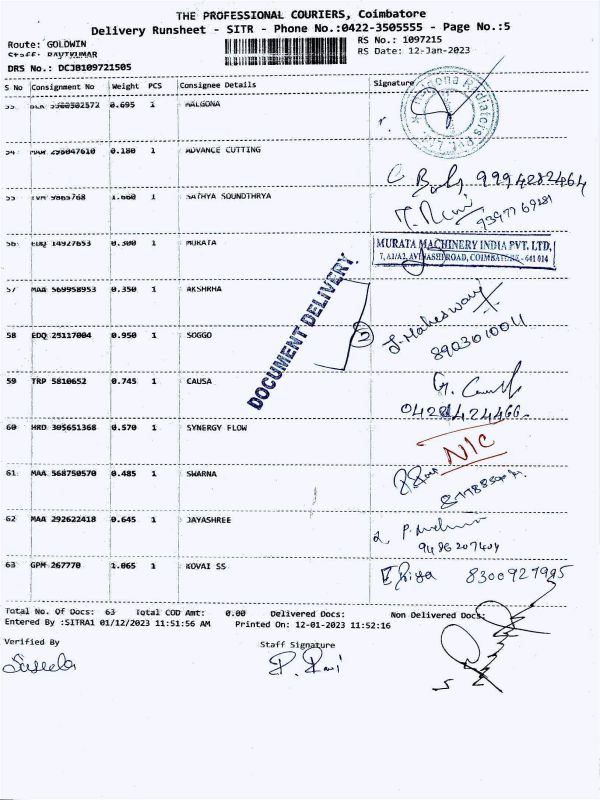 THE PROFESSIONAL COURIERS, Coimbatore
Delivery Runsheet - SITR - Phone No.:0422-3505555 - Page No.:5
Route: GOLDWIN
RS No.: 1097215
Staff: RAVIKUMAR
RS Date: 12-Jan-2023
DRS No.: DCJB109721505
S No Consignment No Weight PCS Consignee Details Signature
0.695 1 MALGONA
54 MAA 296047610 0.180 1 ADVANCE CUTTING
9994282464
55 1.660 1 SATHYA SOUNDTHRYA
56 EDQ 14927653 0.300 1 MURATA
MURATA MACHINERY INDIA PVT. LTD,
7, A1/A2, AVINASHI ROAD, COIMBATORE - 641 014
57 MAA 569958953 0.350 1 AKSHRHA
DOCUMENT DELIVERY
58 EDQ 25117004 0.950 1 SOGGO
8903010011
59 TRP 5810652 0.745 1 CAUSA
60 HRD 305651368 0.570 1 SYNERGY FLOW
N/C
61 MAA 568750570 0.485 1 SWARNA
62 MAA 292622418 0.645 1 JAYASHREE
9486207404
63 GPM 267770 1.065 1 KOVAI SS
8300927995
Total No. Of Docs: 63 Total COD Amt: 0.00 Delivered Docs: Non Delivered Docs:
Entered By :SITRA1 01/12/2023 11:51:56 AM Printed On: 12-01-2023 11:52:16
Verified By
Staff Signature
Suseela
P. Ravi